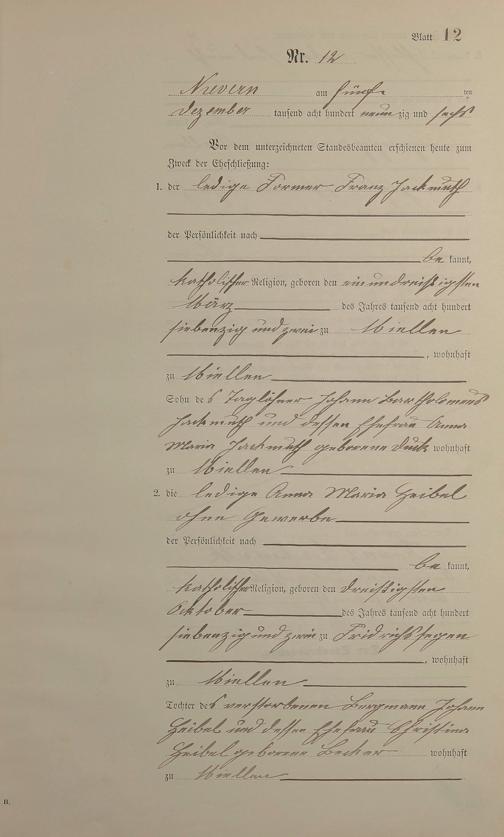 Blatt 12
Nr. 12
Nievern am fünf ten
Dezember tausend acht hundert neun zig und sechs
Vor dem unterzeichneten Standesbeamten erschienen heute zum
Zweck der Eheschließung:
1. der ledige Former Franz Jackmuth
der Persönlichkeit nach
be kannt,
katholischer Religion, geboren den einunddreißigsten
März des Jahres tausend acht hundert
siebenzig und zwei zu Miellen
, wohnhaft
zu Miellen
Sohn des Taglöhner Johann Bartholomäus
Jackmuth und dessen Ehefrau Anna
Maria Jackmuth geborene wohnhaft
zu Miellen
2. die ledige Anna Maria Heibel
ohne Gewerbe
der Persönlichkeit nach
be kannt,
katholischer Religion, geboren den dreißigsten
Oktober des Jahres tausend acht hundert
siebenzig und zwei zu Fridrichssegen
, wohnhaft
zu Miellen
Tochter des verstorbenen Bergmann Johann
Heibel und dessen Ehefrau Christina
Heibel geborene Becker wohnhaft
zu Miellen
B.